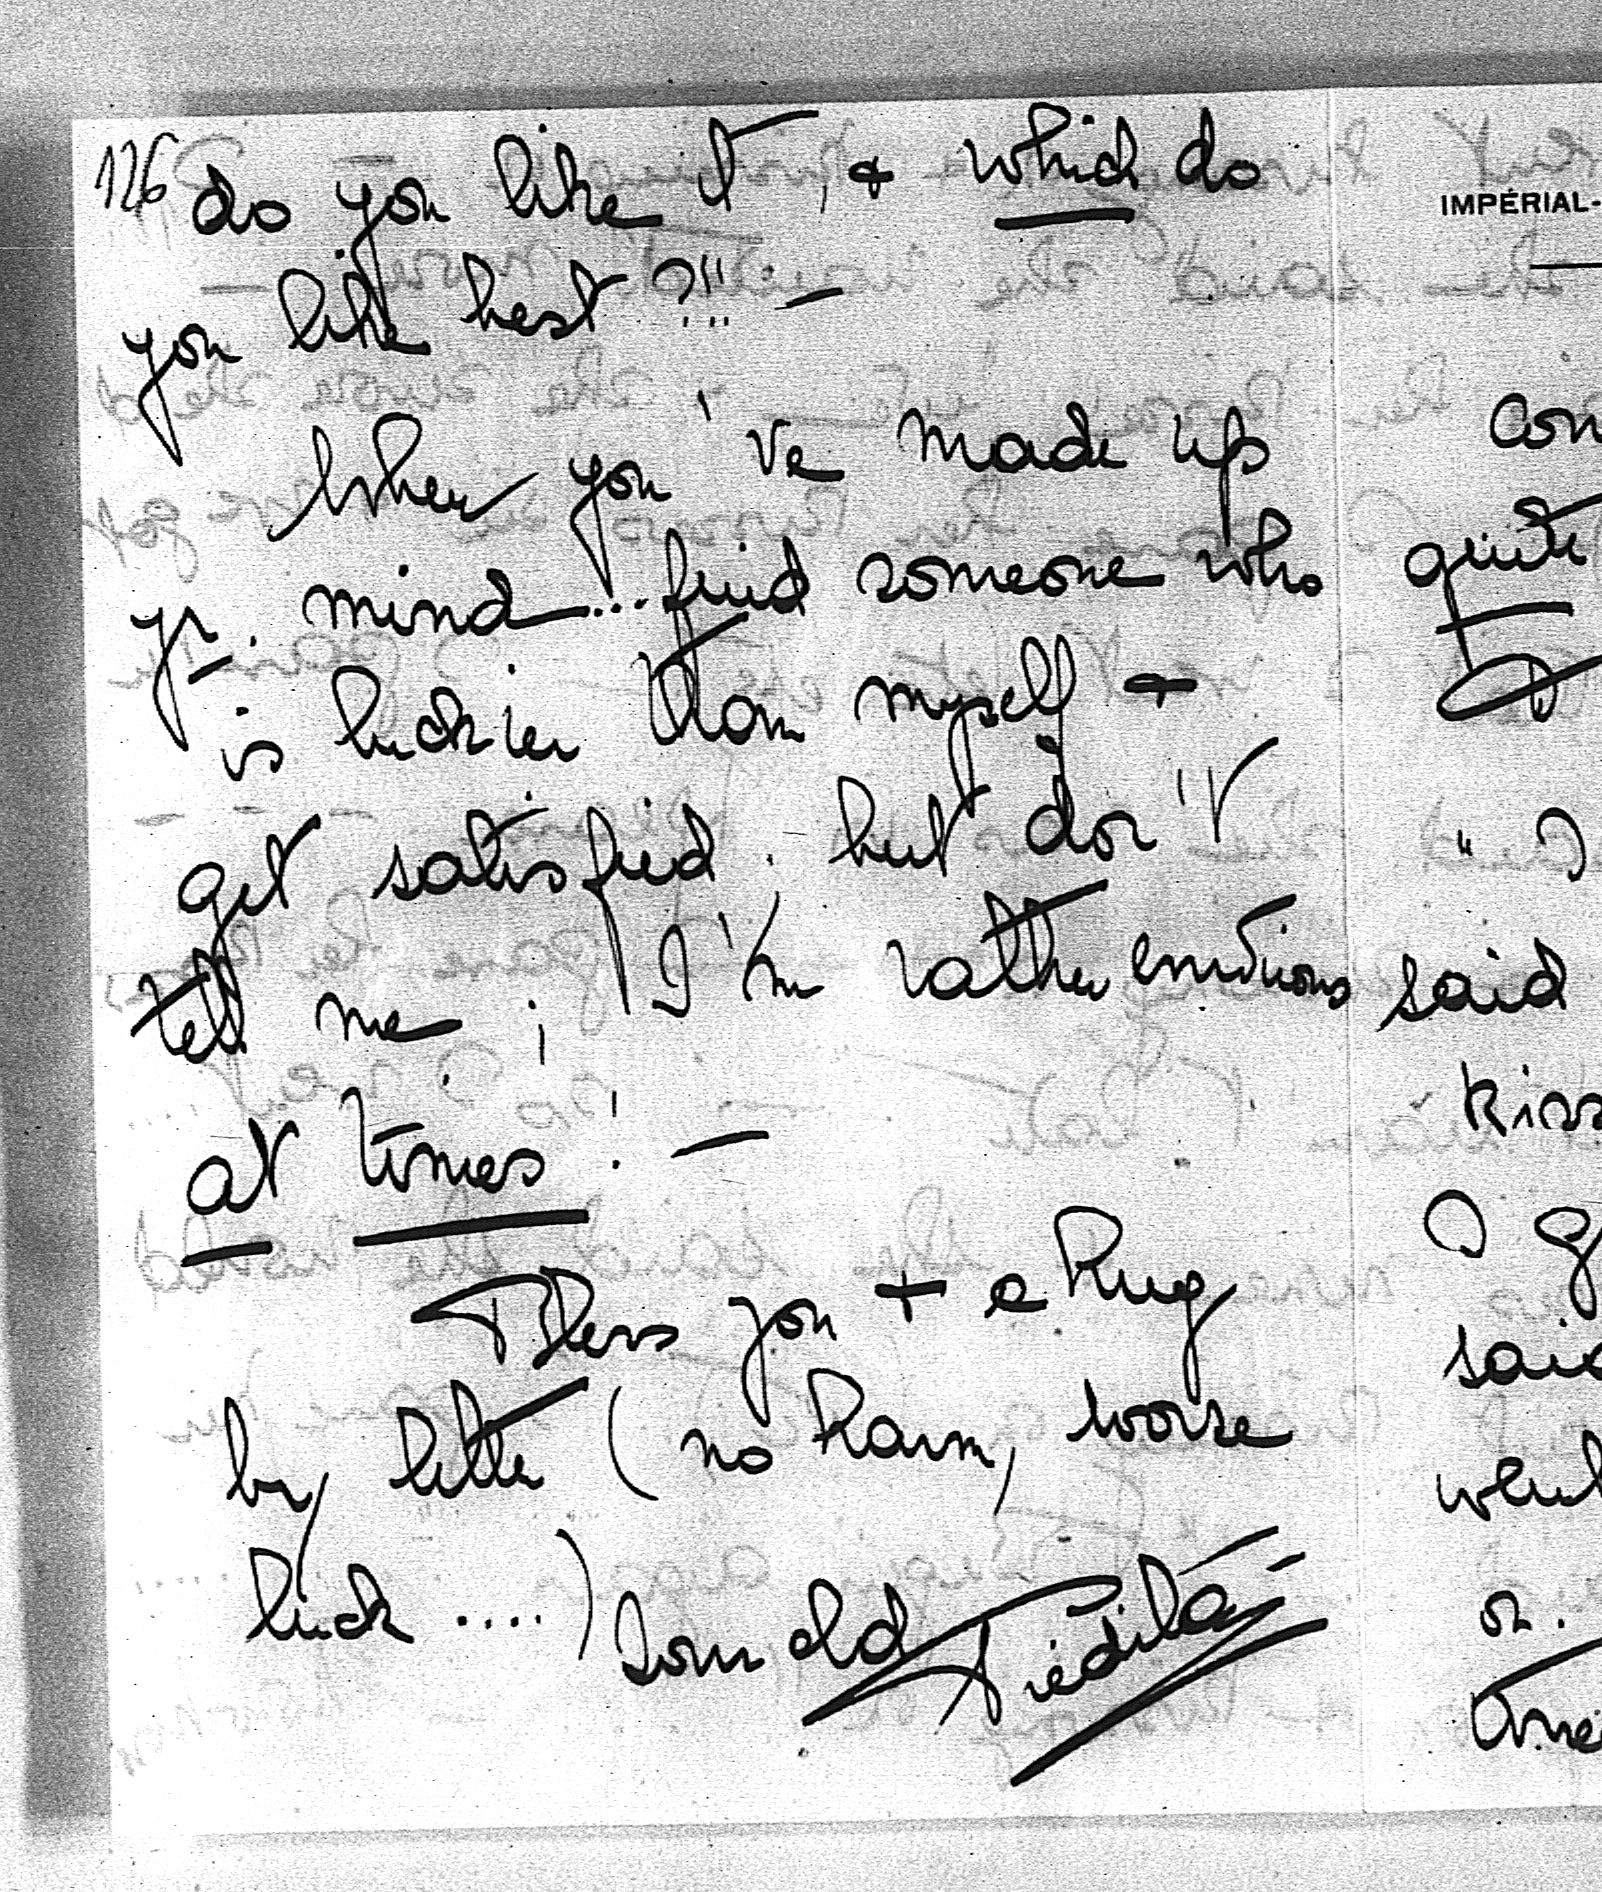 126 do you like it, & which do
you like best?!!! —
When you've made up
yr. mind... find someone who
is luckier than myself +
get satisfied. but don't
tell me; I'm rather envious
at times! —
Bless you + a hug
by letter (no harm, worse
luck ....) Your old
IMPÉRIAL-
con
quite
" I
said
kiss
I g
said
on.